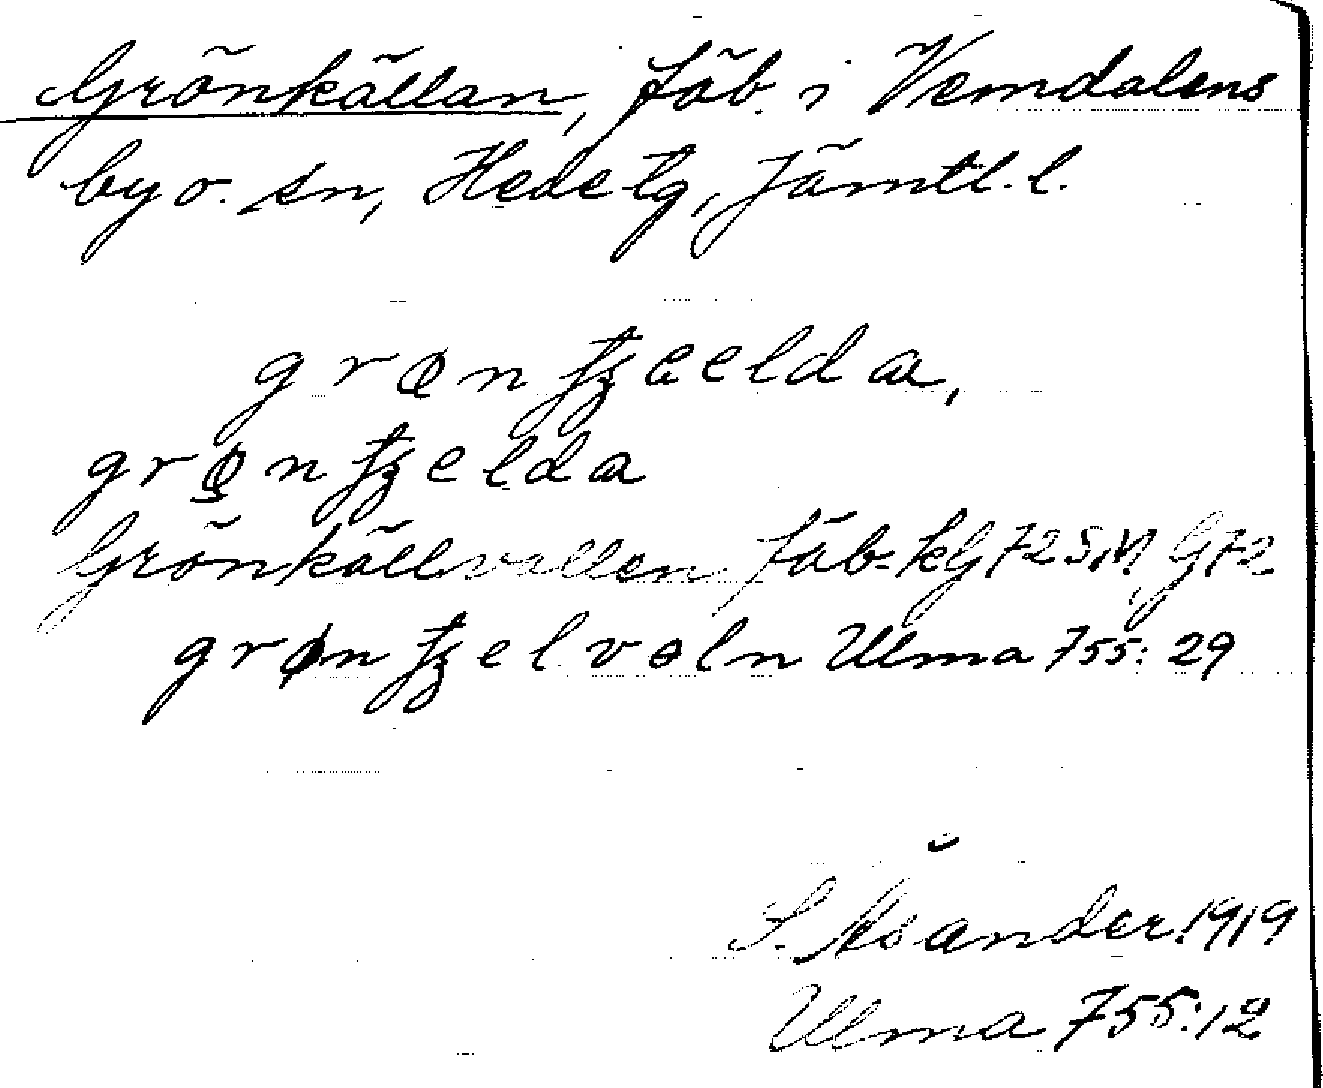 Grönkällan, fäb. i Vemdalens
by o. sn, Hede tg, Jämtl. l.
grøn tʒæelda,
grøn tʒelda
Grönkällvallen fäb. kG72SM, G72
grøn tʒelvəln Ulma 755:29
S. Åsander 1919
Ulma 755:12